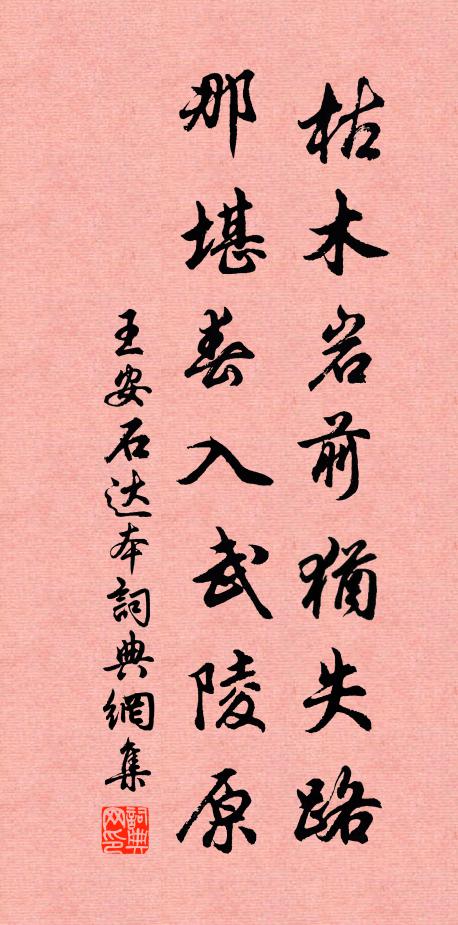 枯木岩前猶失路
那堪春入武陵原
王安石达本詞典網集
詞典网印